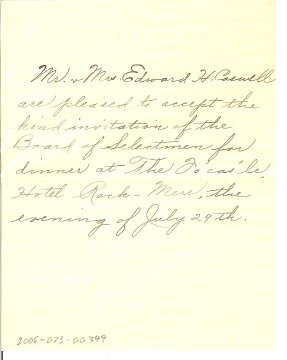 Mr. & Mrs. Edward H. Caswell
are pleased to accept the
kind invitation of the
Board of Selectmen for
dinner at The Fo'cas'le,
Hotel Rock-Mere, the
evening of July 29th.
2006-073-00399